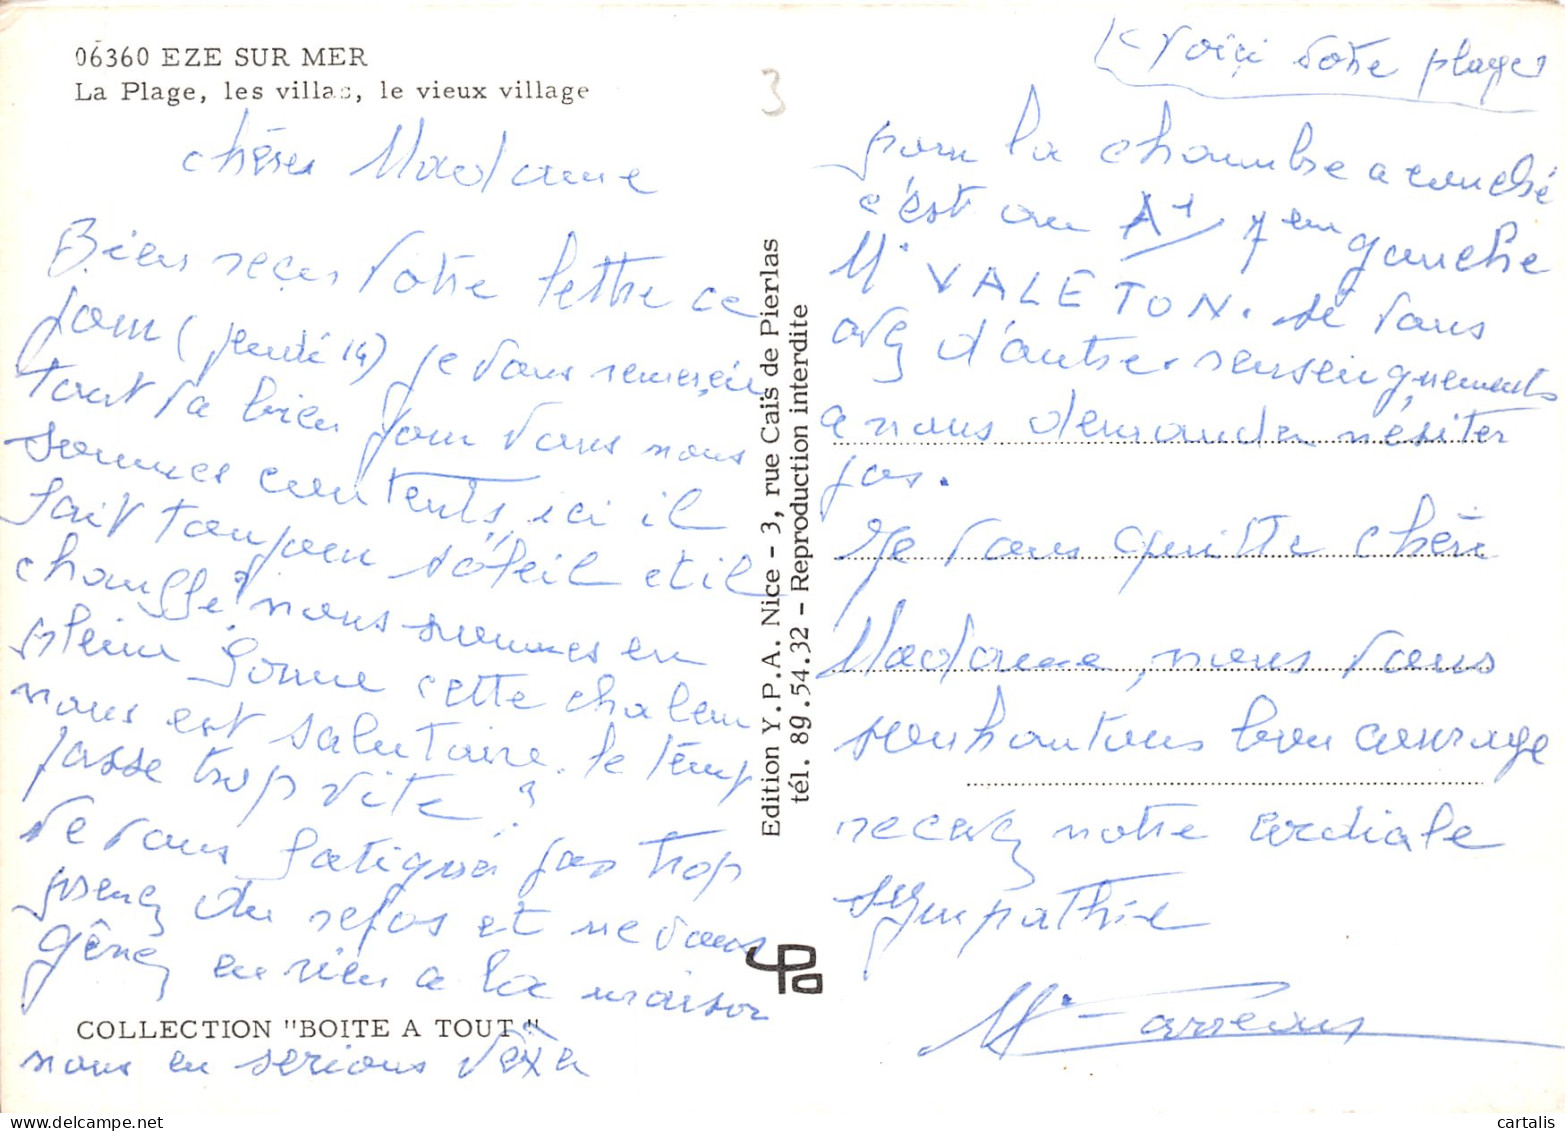 06360 EZE SUR MER
La Plage, les villas, le vieux village
chères Madame
Bien reçu Votre lettre ce
jour (jeudi 14) je vous remercie
tout va bien pour vous nous
sommes contents, ici il
fait toujour soleil et il
chauffe, nous sommes en
pleine forme cette chaleur
nous est salutaire. le temp
passe trop vite ?
ne vous fatiguer pas trop
prenez du repos et ne vous
gênez en rien a la maison
nous en serions vexer
COLLECTION "BOITE A TOUT"
3
Edition Y.P.A. Nice - 3, rue Caïs de Pierlas
tél. 89.54.32 - Reproduction interdite
ypa
voici votre plage
pour la chambre a couché
c'est au A1 7em gauche
Mr VALETON. si vous
avez d'autre renseignements
a nous demander n'ésiter
pas.
Je vous quitte chère
Madame, nous vous
souhaitons bon courage
recevez notre cordiale
sympathie